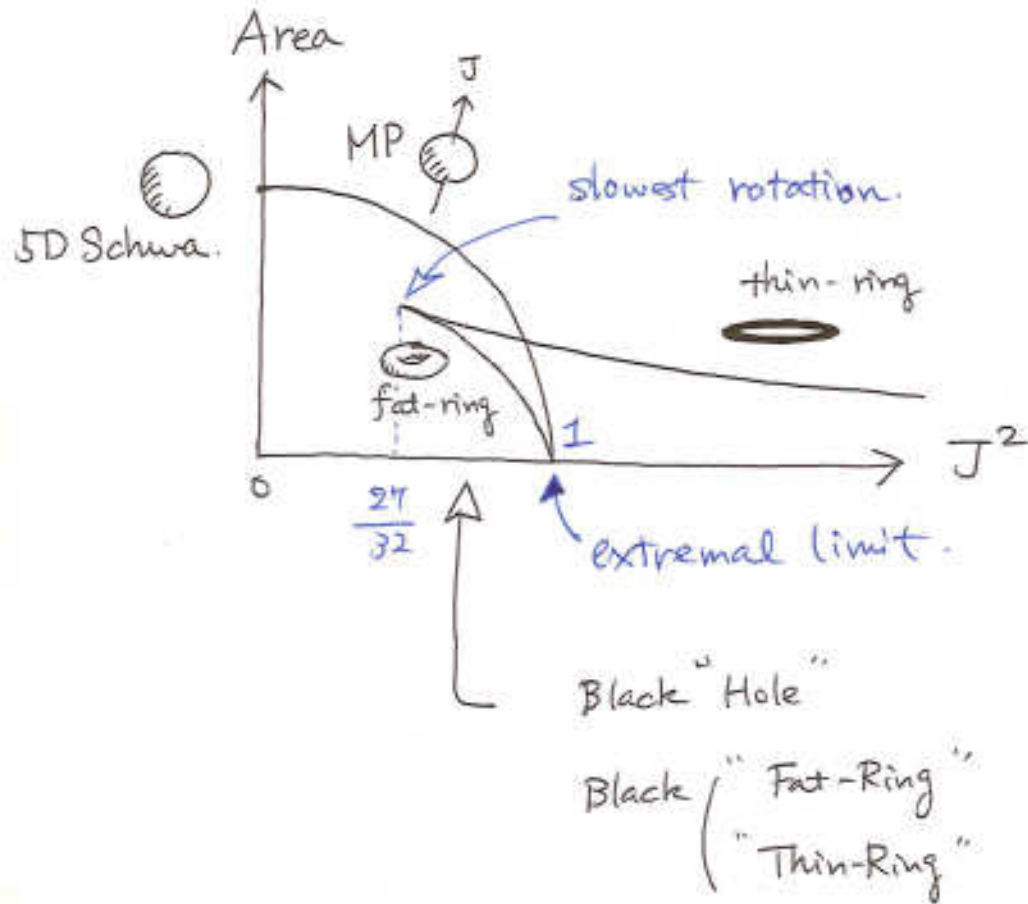 Area
J
MP
slowest rotation.
5D Schwa.
thin-ring
fat-ring
1
J²
0
27
32
extremal limit.
Black "Hole"
Black ( "Fat-Ring"
"Thin-Ring"